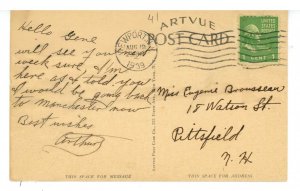 41
ARTVUE
POST CARD
NEWPORT
AUG 19
1939
1 CENT 1
Hello Gene
will see you
week sure I'm
here as I told you
I would be going back
to Manchester now
Best wishes
Arthur
Miss Eugenie Brousseau
18 Watson St.
Pittsfield
N. H
THIS SPACE FOR MESSAGE
THIS SPACE FOR ADDRESS